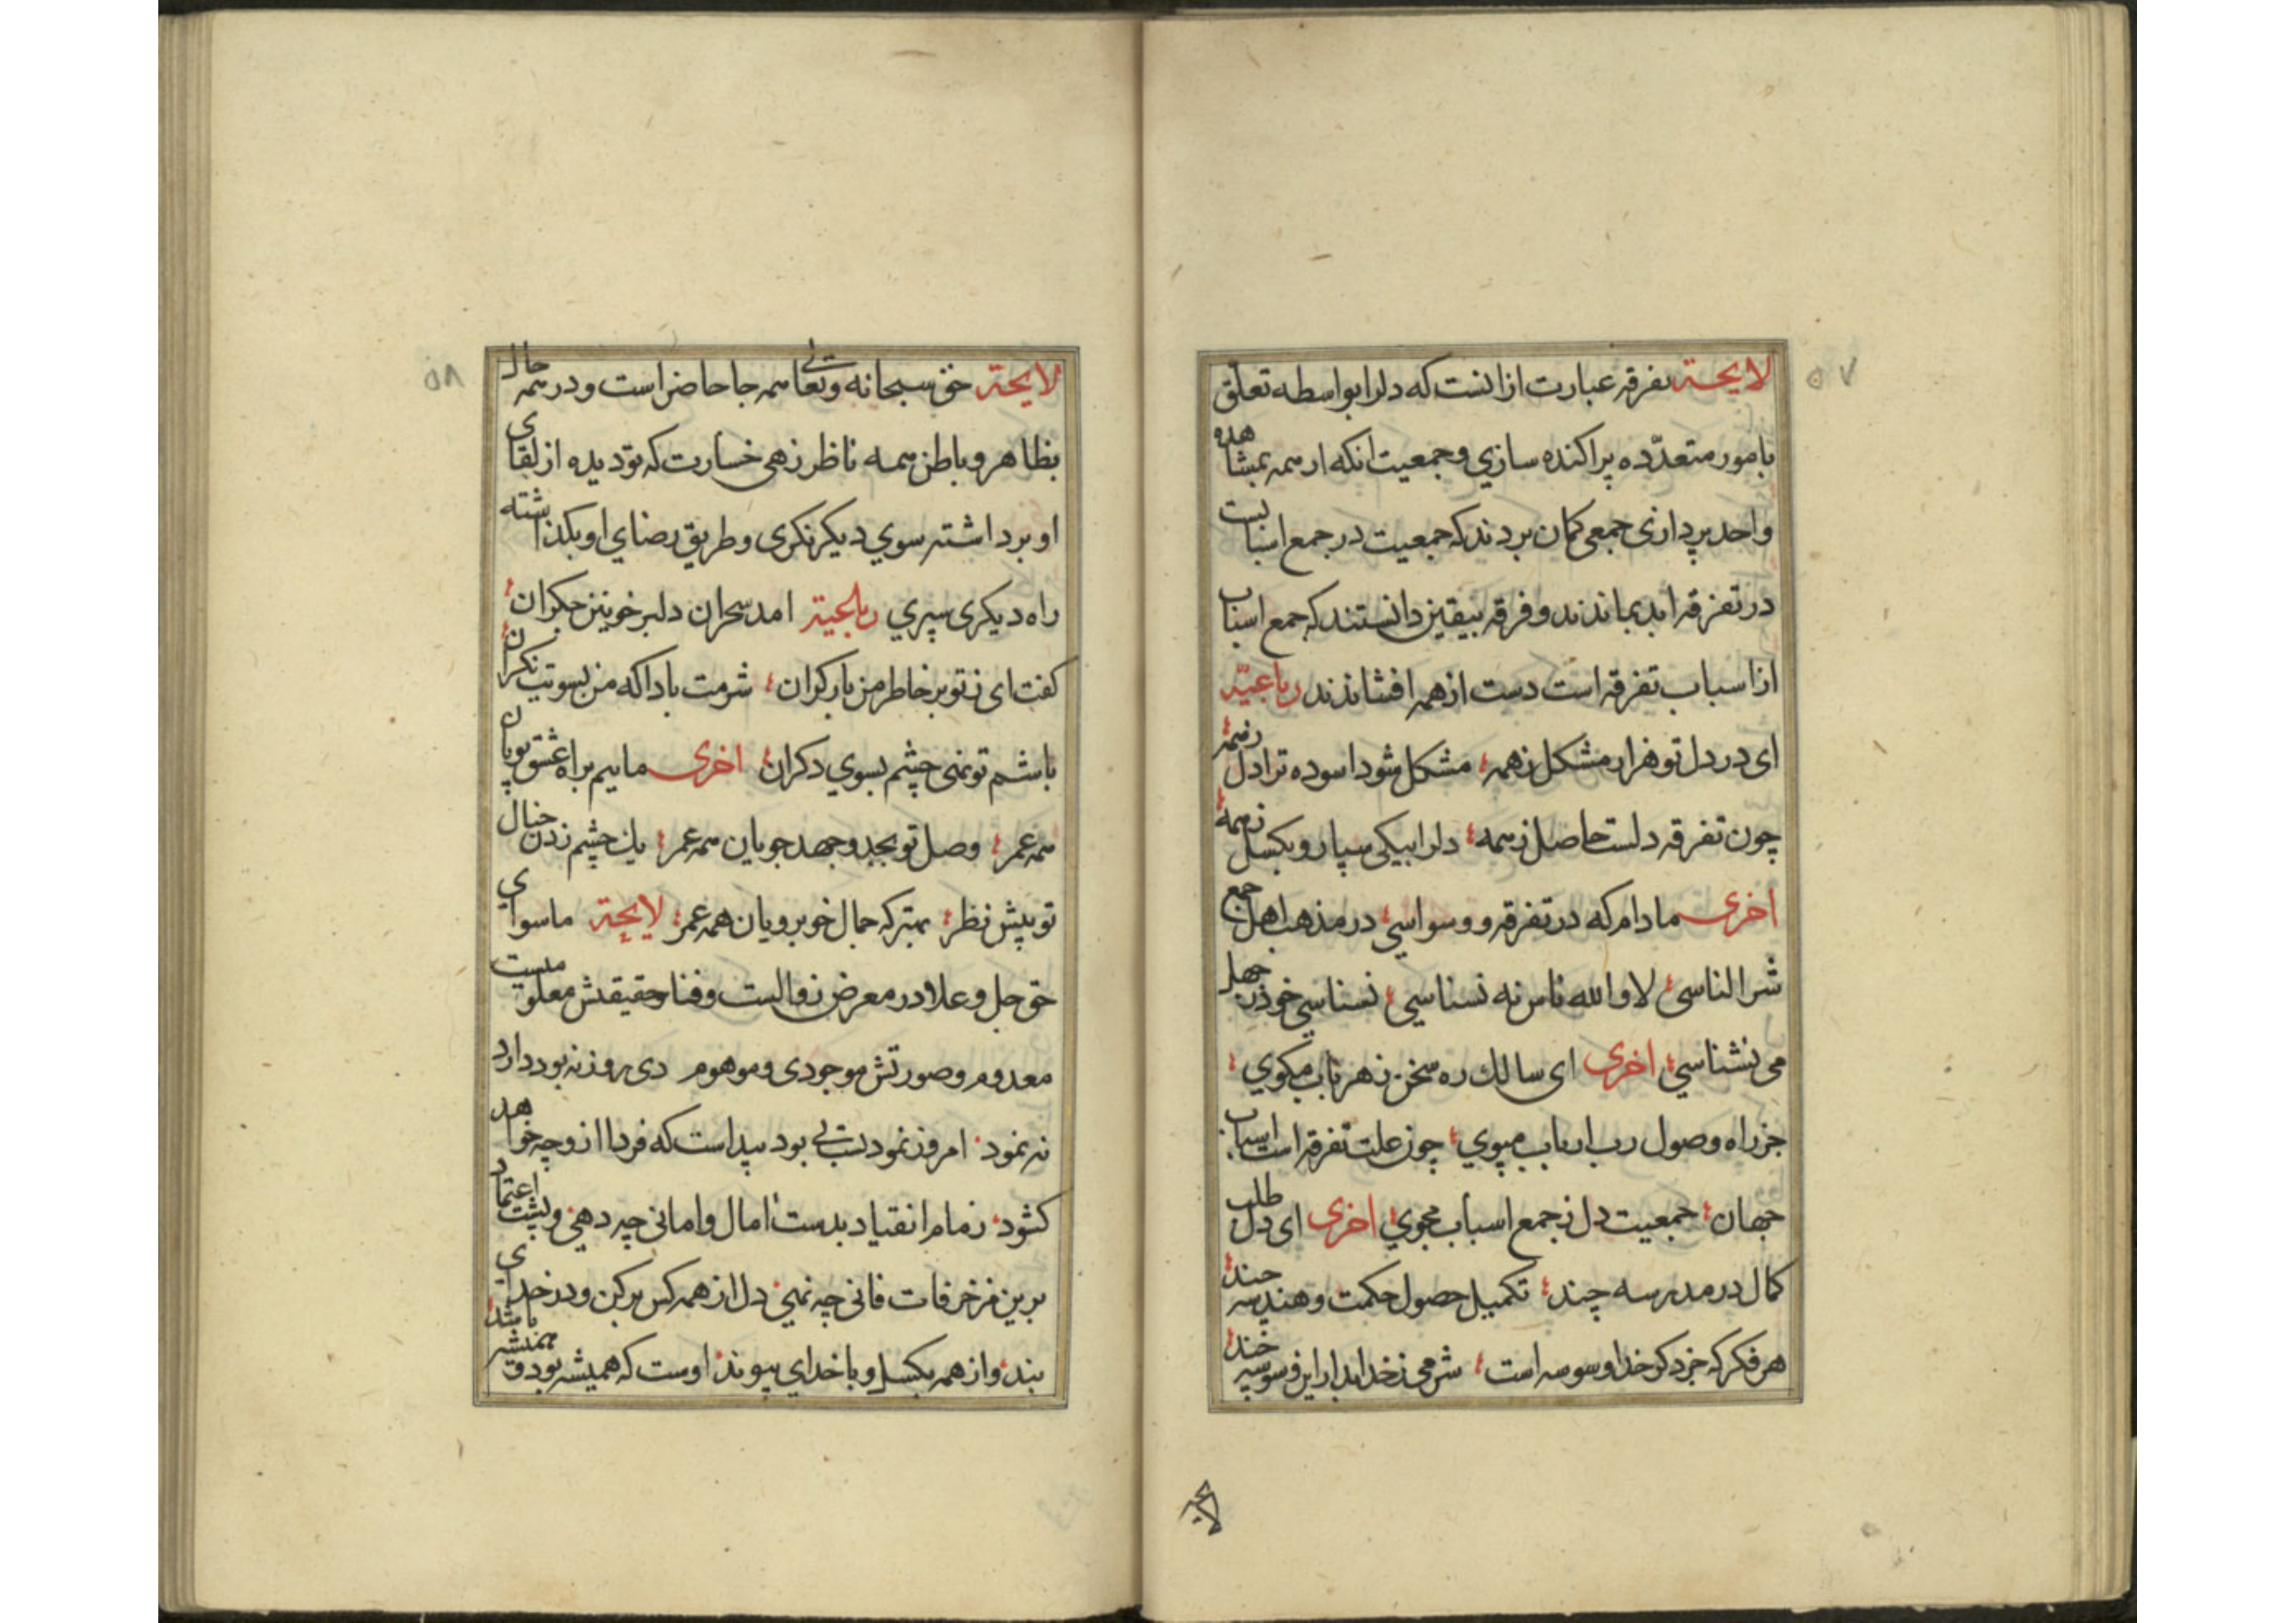 ۵۷
لایحة تفرقه عبارت از انست که دلرا بواسطه تعلق
بامور متعدّده پراکنده سازي و جمعیت انکه از همه بمشاهده
واحد پردازی جمعی کمان بردند که جمعیت در جمع اسبابست
در تفرقه ابد بماندند و فرقه بیقین دانستند که جمع اسباب
از اسباب تفرقه است دست از همه افشاندند رباعیّة
ای در دل تو هزار مشکل ز همه مشکل شود اسوده ترا دل ز همه
چون تفرقه دلست حاصل ز همه دلرا بیکی سپار و بکسل ز همه
اخری مادام که در تفرقه و وسواسي در مذهب اهل جمع
شر الناسی لا والله ناس نه نسناسي نسناسي خود ز جهل
می نشناسي اخری ای سالك ره سخن ز هر باب مکوي
جز راه وصول رب ارباب مپوي چون علت تفرقه است اسباب
جهان جمعیت دل ز جمع اسباب مجوي اخری ای دل طلب
کمال در مدرسه چند تکمیل حصول حکمت و هندسه چند
هر فکر که جز ذکر خدا وسوسه است شرمی ز خدا بدار این وسوسه چند
لایحه
۵۸
لایحة حق سبحانه وتعالی همه جا حاضر است و در همه حال
بظاهر و باطن همه ناظر زهی خسارت که تو دیده از لقای
او برداشته سوي دیکر نکری و طریق رضاي او بکذاشته
راه دیکری سپري رباعیة امد سحر ان دلبر خونین جکران
کفت ای ز تو بر خاطر من بار کران شرمت بادا که من بسویت نکران
باشم تو نهی چشم بسوي دکران اخری ماییم براه عشق پویان
همه عمر وصل تو بجد و جهد جویان همه عمر یك چشم زدن خیال
تو پیش نظر بهتر که جمال خوبرویان همه عمر لایحة ماسوای
حق جل و علا در معرض زوالست و فنا حقیقتش معلومیست
معدوم و صورتش موجودی و موهوم دی روز نه بود دارد
نه نمود امروز نمودیست بی بود پیداست که فردا از وچه خواهد
کشود زمام انقیاد بدست امال و امانی چه دهي و پشت اعتماد
برین مزخرفات فانی چه نهي دل از همه کس برکن و در خدای
بند و از همه بکسل و با خدای پیوند اوست که همیشه بود و همیشه باشد